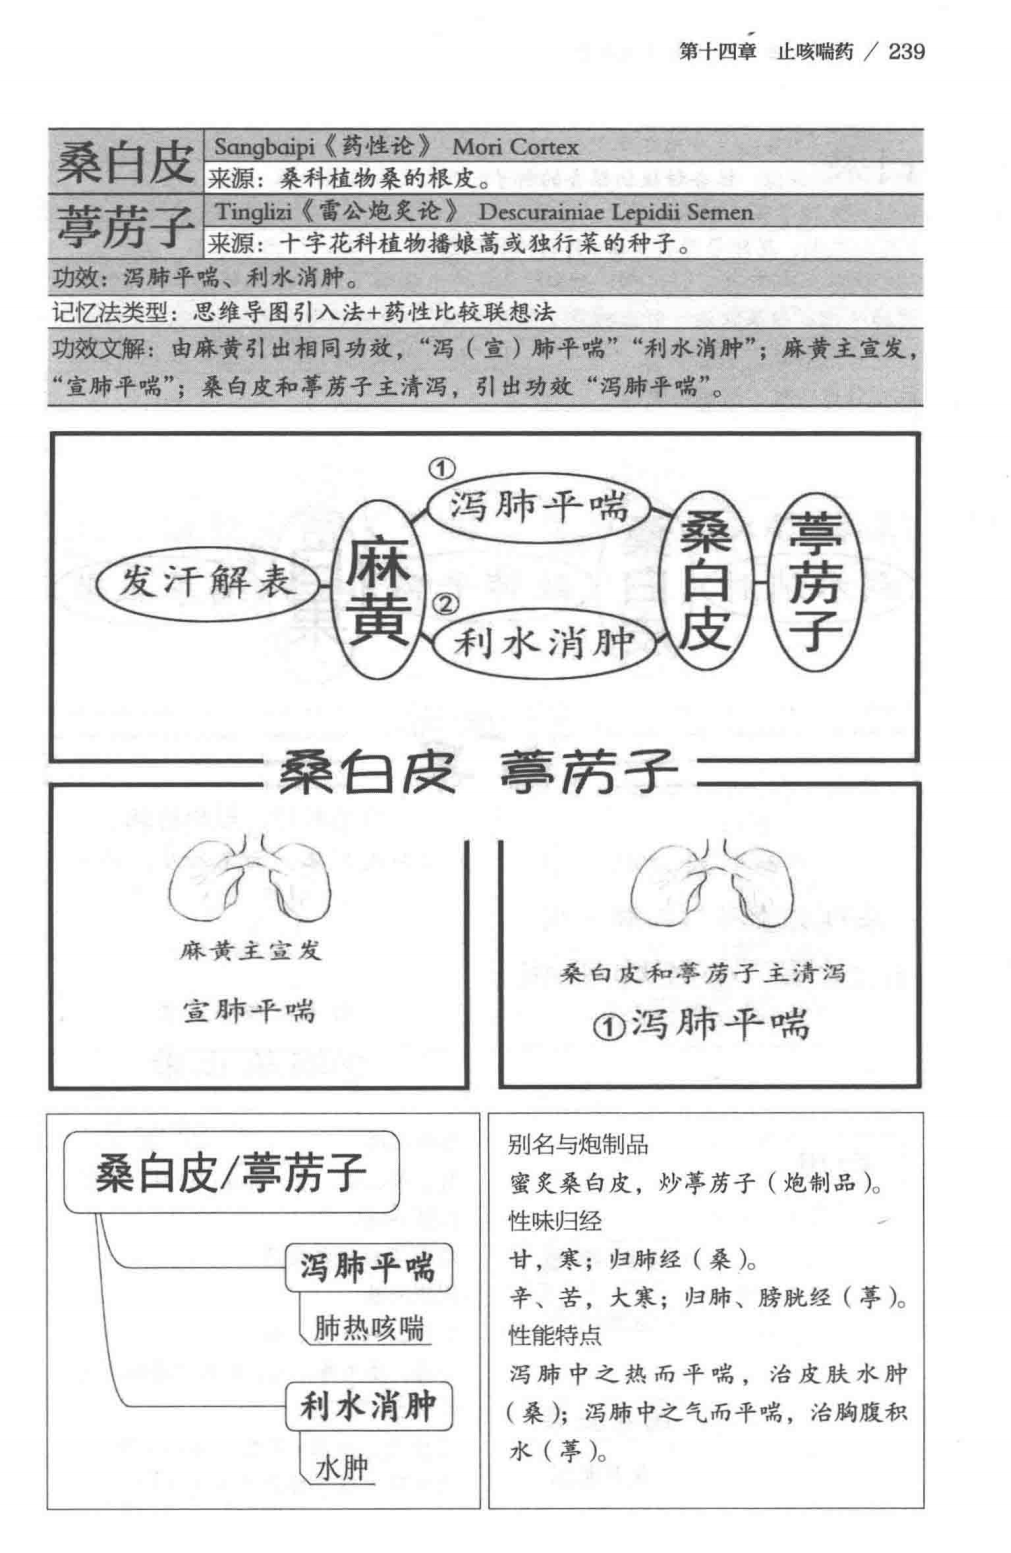 第十四章 止咳喘药 / 239
桑白皮
Sangbaipi《药性论》 Mori Cortex
来源：桑科植物桑的根皮。
葶苈子
Tinglizi《雷公炮炙论》 Descurainiae Lepidii Semen
来源：十字花科植物播娘蒿或独行菜的种子。
功效：泻肺平喘、利水消肿。
记忆法类型：思维导图引入法+药性比较联想法
功效文解：由麻黄引出相同功效，“泻（宣）肺平喘”“利水消肿”；麻黄主宣发，
“宣肺平喘”；桑白皮和葶苈子主清泻，引出功效“泻肺平喘”。
发汗解表
麻黄
①
泻肺平喘
②
利水消肿
桑白皮
葶苈子
桑白皮 葶苈子
麻黄主宣发
宣肺平喘
桑白皮和葶苈子主清泻
①泻肺平喘
桑白皮/葶苈子
泻肺平喘
肺热咳喘
利水消肿
水肿
别名与炮制品
蜜炙桑白皮，炒葶苈子（炮制品）。
性味归经
甘，寒；归肺经（桑）。
辛、苦，大寒；归肺、膀胱经（葶）。
性能特点
泻肺中之热而平喘，治皮肤水肿
（桑）；泻肺中之气而平喘，治胸腹积
水（葶）。